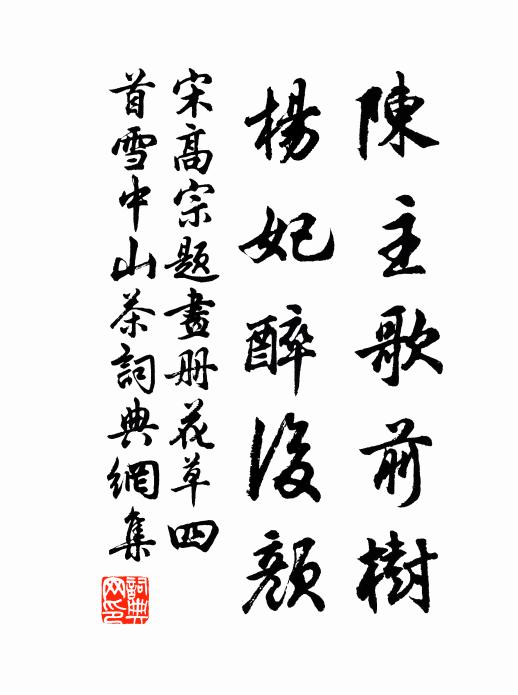 陳主歌前樹
楊妃醉後顏
宋高宗題畫册花草四
首雪中山茶詞典網集
詞典
网印